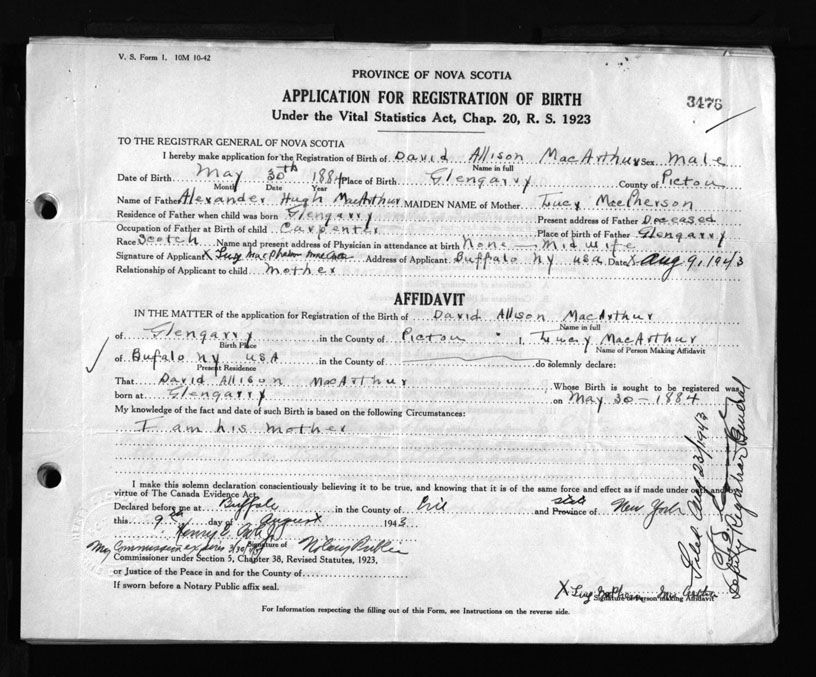 V. S. Form 1. 10M 10-42
PROVINCE OF NOVA SCOTIA
APPLICATION FOR REGISTRATION OF BIRTH
3476
Under the Vital Statistics Act, Chap. 20, R. S. 1923
TO THE REGISTRAR GENERAL OF NOVA SCOTIA
I hereby make application for the Registration of Birth of David Allison MacArthur Sex male
Name in full
Date of Birth May 30th 1884 Place of Birth Glengarry County of Pictou
Month Date Year
Name of Father Alexander Hugh MacArthur MAIDEN NAME of Mother Lucy MacPherson
Residence of Father when child was born Glengarry Present address of Father Deceased
Occupation of Father at Birth of child Carpenter Place of birth of Father Glengarry
Race Scotch Name and present address of Physician in attendance at birth None - Midwife
Signature of Applicant X Lucy Address of Applicant Buffalo NY USA Date X Aug 9, 1943
Relationship of Applicant to child mother
AFFIDAVIT
IN THE MATTER of the application for Registration of the Birth of David Allison MacArthur
Name in full
of Glengarry in the County of Pictou I, Lucy MacArthur
Birth Place Name of Person Making Affidavit
of Bufalo NY USA in the County of do solemnly declare:
Present Residence
That David Allison MacArthur Whose Birth is sought to be registered was
born at Glengarry on May 30 - 1884
My knowledge of the fact and date of such Birth is based on the following Circumstances:
I am his mother
I make this solemn declaration conscientiously believing it to be true, and knowing that it is of the same force and effect as if made under oath and by
virtue of The Canada Evidence Act.
Declared before me at Buffalo in the County of Erie and State Province of New York
this 9th day of August 1943
Henry
My Commission expires Signature of Notary Public
Commissioner under Section 5, Chapter 38, Revised Statutes, 1923,
or Justice of the Peace in and for the County of
If sworn before a Notary Public affix seal.
X Lucy
Signature of Person making Affidavit
For Information respecting the filling out of this Form, see Instructions on the reverse side.
Filed Aug 23/1943
Deputy Registrar General